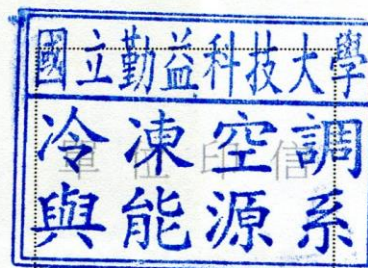 國立勤益科技大學
冷凍空調
單位印信
與能源系